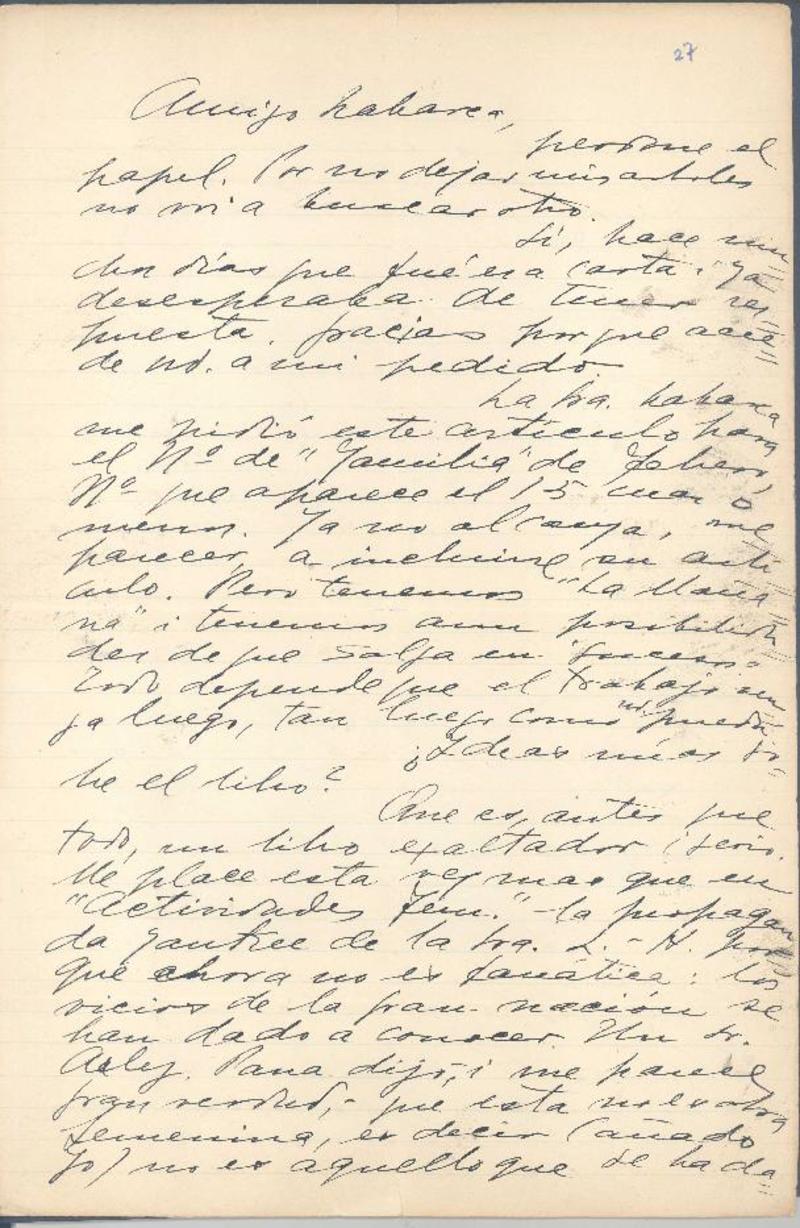 27
Amigo Labarca,
perdone el
papel. Por no dejar mis arboles
no voi a buscar otro.
Sí, hace mu-
chos días que fué esa carta i ya
desesperaba de tener res-
puesta. Gracias porque acce-
de Ud. a mi pedido.
La Sra. Labarca
me pidió este artículo para
el Nº de "Familia" de Febrero,
Nº que aparece el 15 mas o
menos. Ya no alcanza, me
parece, a incluirse su artí
culo. Pero tenemos "La Maña
na" i tenemos aun posibilida
des de que salga en "Sucesos".
Todo depende que el trabajo ven
ga luego, tan luego como Ud. pueda.
¿Ideas mías so-
bre el libro?
Que es, antes que
todo, un libro exaltador i serio.
Me place esta vez mas que en
"Actividades Fem." - la propagan
da yankee de la Sra. L. - H. por
que ahora no es fanática: los
vicios de la gran nación se
han dado a conocer. Un Sr.
dijo, i me parece
gran verdad, - que esta no es obra
femenina, es decir (añado
yo) no es aquello que se ha da=